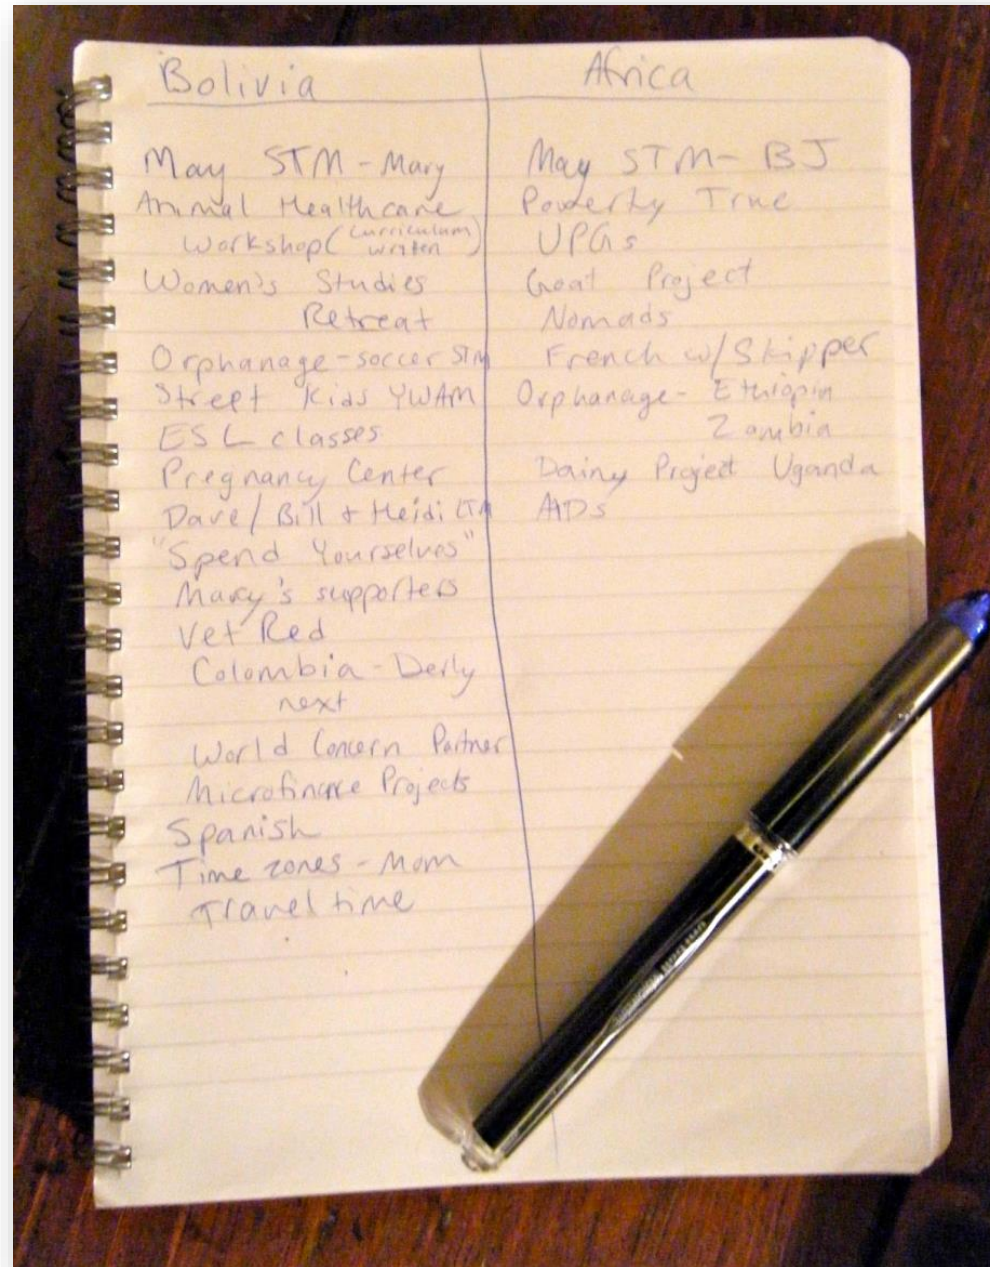 Bolivia
May STM - Mary
Animal Healthcare
Workshop (curriculum written)
Women's Studies
Retreat
Orphanage - soccer STM
Street Kids YWAM
ESL classes
Pregnancy Center
Dave/Bill + Heidi LTM
"Spend Yourselves"
Mary's supporters
Vet Red
Colombia - Derly
next
World Concern Partner
Microfinance Projects
Spanish
Time zones - Mom
Travel time
Africa
May STM - BJ
Poverty True
UPGs
Goat Project
Nomads
French w/ Skipper
Orphanage - Ethiopia
Zambia
Dairy Project Uganda
AIDs